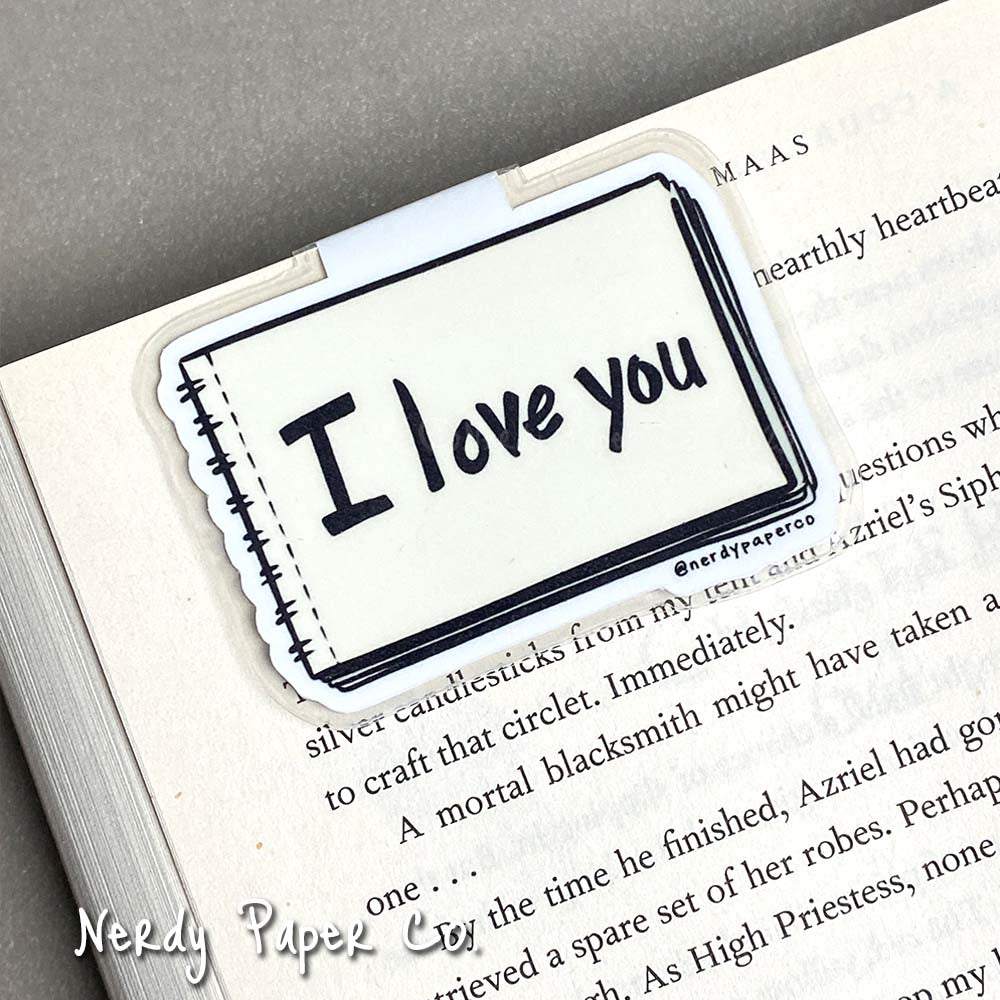 MAAS
nearthly heartbea
I love you
questions wh
@nerdypaperco
silver candlesticks from my tent and Azriel's Siph
to craft that circlet. Immediately.
A mortal blacksmith might have taken a
one . . .
By the time he finished, Azriel had go
trieved a spare set of her robes. Perhap
gh. As High Priestess, none
op my
Nerdy Paper Co.